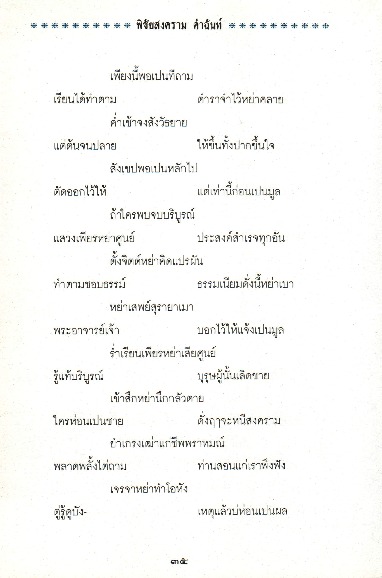 พิชัยสงคราม คำฉันท์
เพียงนี้พอเปนทีถาม
เรียนได้ทำตาม ตำราจำไว้หย่าคลาย
ค่ำเช้าจงสังวัธยาย
แต่ต้นจนปลาย ให้ขึ้นทั้งปากขึ้นใจ
สังเขปพอเปนหลักไป
ตัดออกไว้ให้ แต่เท่านี้ก่อนเปนมูล
ถ้าใครพบจบบริบูรณ์
แสวงเพียรหยาศูนย์ ประสงค์สำเรจทุกอัน
ตั้งจิตต์หย่าคิดแปรผัน
ทำตามชอบธรรม์ ธรรมเนียมดั่งนี้หย่าเบา
หย่าเสพย์สุรายาเมา
พระอาจารย์เจ้า บอกไว้ให้แจ้งเปนมูล
ร่ำเรียนเพียรหย่าเสียศูนย์
รู้แท้บริบูรณ์ บุรุษผู้นั้นเลิดชาย
เข้าสึกหย่านึกกลัวตาย
ใครห่อนเปนชาย ดั่งฤๅจะหนีสงคราม
ยำเกรงเฒ่าแก่ชีพพราหมณ์
พลาดพลั้งไต่ถาม ท่านสอนแก่เราพึงฟัง
เจรจาหย่าทำโอหัง
ตู่รู้ดูบัง- เหตุแล้วบ่ห่อนเปนผล
๓๕